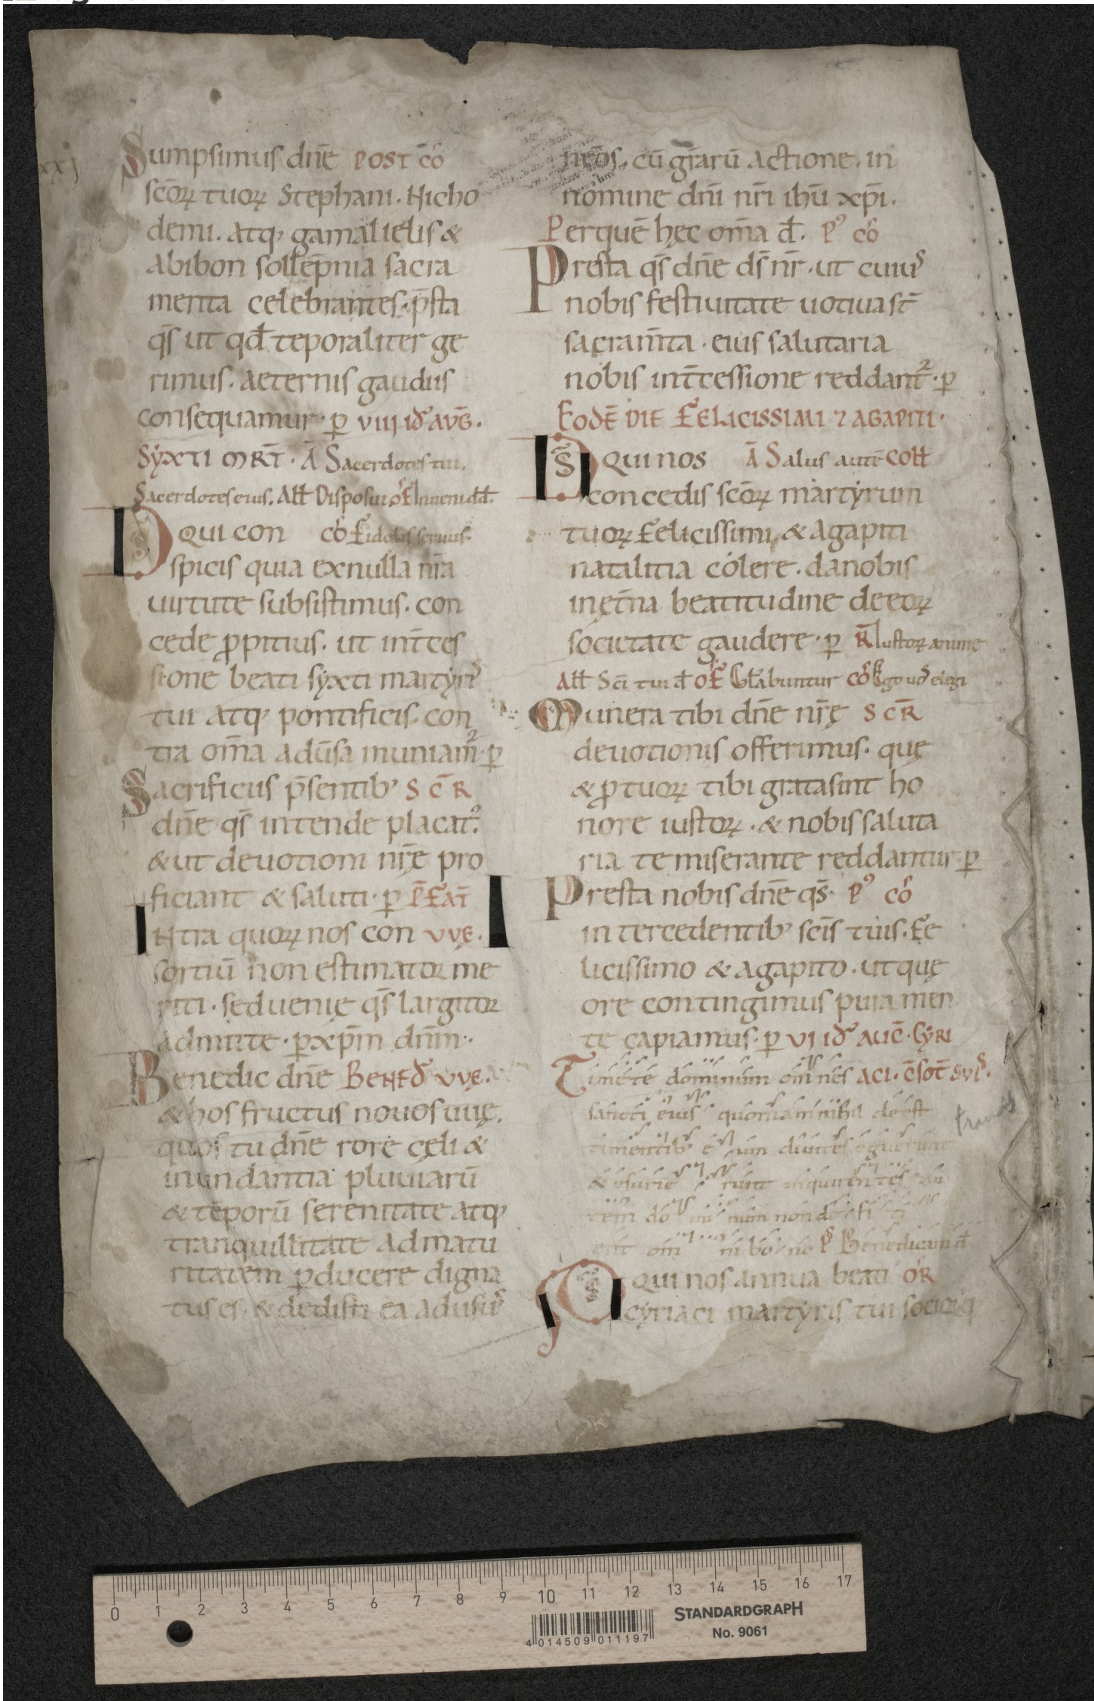 xxj
Sumpsimus dn̄e POST CŌ
scōꝝ tuoꝝ Stephani. Nicho
demi. atq; gamalielis &
Abibon sollēpnia sacra
menta celebrantes. p̄sta
q̄s ut qđ tēporaliter ge
rimus. aeternis gaudiis
consequamur. ꝑ VIII ID̄ AVḠ.
SYXTI MR̄T. Ā Sacerdotes tui.
Sacerdotes eius. All̄ Disposui OF̄ Inueni dđ.
D̄S QUI CON CŌ Fidelis seruus.
spicis quia ex nulla nr̄a
uirtute subsistimus. con
cede ꝓpitius. ut int̄ces
sione beati syxti martyrꝭ
tui atq; pontificis. con
tra om̄a aduersa muniam̄ᷣ. ꝑ
Sacrificiis p̄sentib; S C̄ R
dn̄e q̄s intende placatꝰ.
& ut deuotioni nr̄ę pro
ficiant & saluti. ꝑ P̄FAT̄
INtra quoꝝ nos con VVĘ.
sortiū non estimator me
riti. sed uenię q̄s largitor
admitte. ꝑ xp̄m dn̄m.
Benedic dn̄e BENED̄ VVĘ.
& hos fructus nouos uuę.
quos tu dn̄e rore cęli &
inundantia pluuiarū
& tēporū serenitate atq;
tranquillitate ad matu
ritatem ꝑducere digna
tus es. & dedisti ea ad usuꝭ
nr̄os. cū gr̄arū actione. in
nomine dn̄i nr̄i ihū xp̄i.
Per quē hęc om̄a đ. Pꝰ CŌ
Presta q̄s dn̄e dš nr̄. ut cuiuꝭ
nobis festiuitate uotiua st̄
sacram̄ta. eius salutaria
nobis int̄cessione reddant̄ᷣ. ꝑ
EODĒ DIE FELICISSIMI ⁊ AGAPITI.
D̄S QUI NOS Ā Salus autē COLL̄
concedis scōꝝ martyrum
tuoꝝ felicissimi & Agapiti
natalitia cólere. da nobis
in ęt̄na beatitudine de eoꝝ
societate gaudere. ꝑ R̄ Iustoꝝ anime
All̄ Sc̄i tui đ OF̄ Gl̄abuntur CŌ Ego uos elegi
Munera tibi dn̄e nr̄ę S C R̄
deuotionis offerimus. quę
& ꝓ tuoꝝ tibi grata sint ho
nore iustoꝝ. & nobis saluta
ria te miserante reddantur. ꝑ
Presta nobis dn̄e q̄s. Pꝰ CŌ
intercedentib; scīs tuis. Fe
licissimo & agapito. ut quę
ore contingimus pura men
te capiamus. ꝑ VI ID̄ AUḠ. CYRI
Timete dominum omnes ACI.
sancti eius quoniam nihil deest
timentib; eum diuites eguerunt
& esurie runt inquirentes au
tem dominum non deficient
omni bono Pꝭ Benedicam đ
D̄S qui nos annua beati OR̄
cyriaci martyris tui